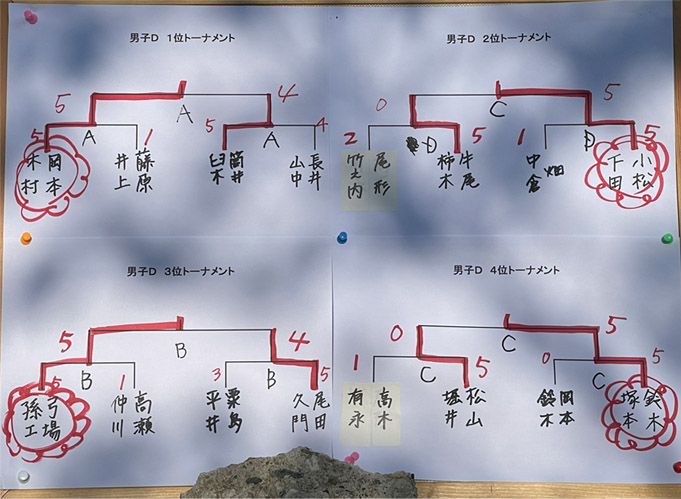 男子D 1位トーナメント
5
4
A
5
1
5
4
A
A
岡本
木村
藤原
井上
筒井
臼木
長井
山中
男子D 2位トーナメント
0
5
C
2
5
1
5
D
D
尾形
竹之内
牛尾
柿木
畑
中倉
小松
下田
男子D 3位トーナメント
5
4
B
5
1
3
5
B
B
弓場
孫工
高瀬
仲川
粟島
平井
尾田
久門
男子D 4位トーナメント
0
5
C
1
5
0
5
C
C
高木
有永
松山
堀井
岡本
鈴木
鈴木
塚本